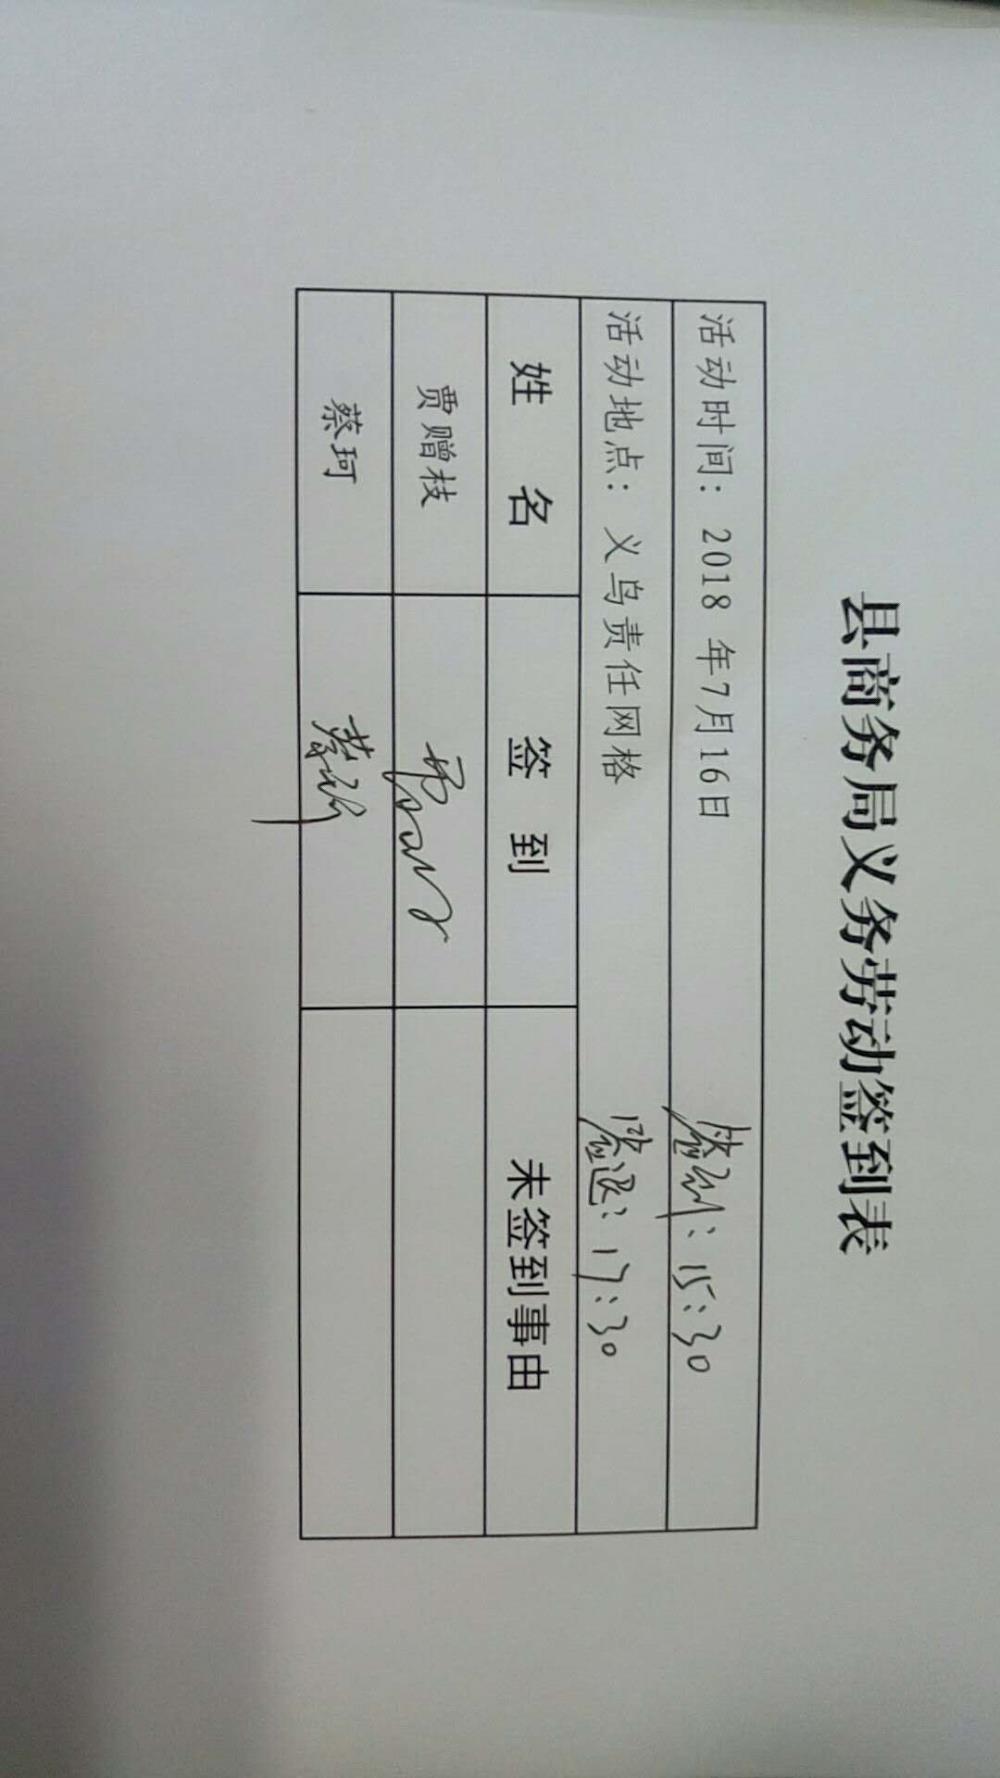 县商务局义务劳动签到表
活动时间：2018 年7月16日 签到：15:30
活动地点：义乌责任网格 签退：17:30
姓 名 签 到 未签到事由
贾赠枝
蔡珂 蔡珂